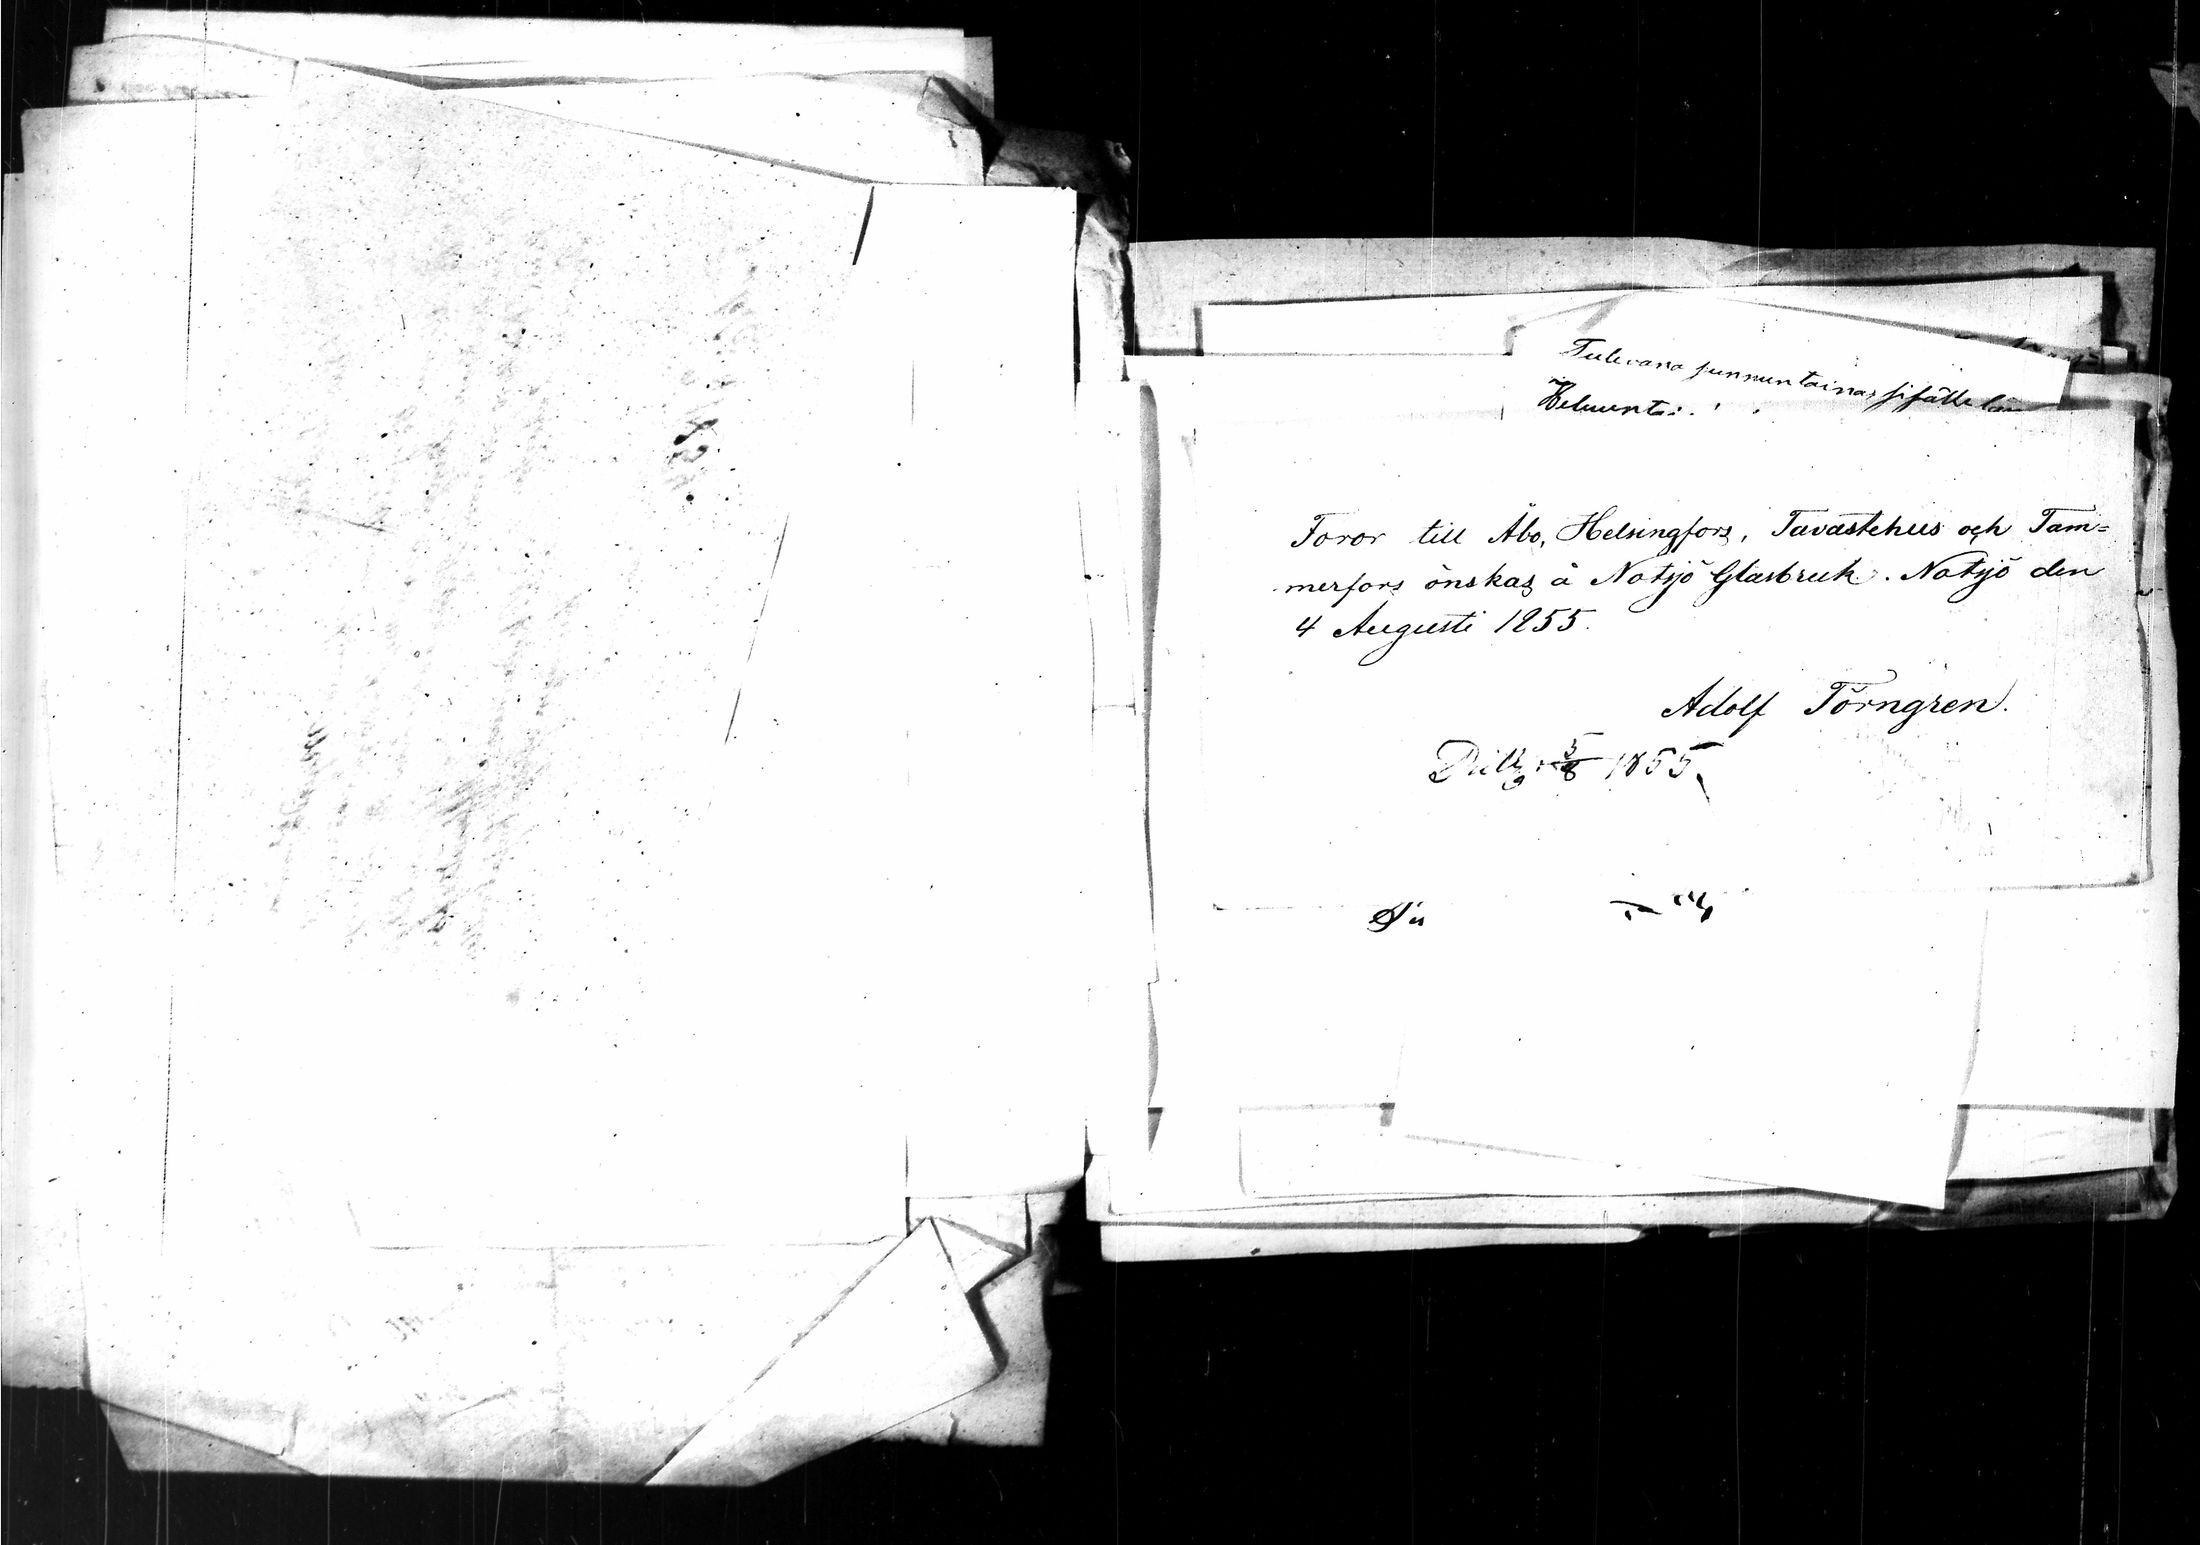 Tulevana sunnuntaina
Foror till Åbo, Helsingfors, Tavastehus och Tam=
merfors önskas å Notsjö Glasbruk. Notsjö den
4 Augusti 1855.
Adolf Törngren.
5/8 1855